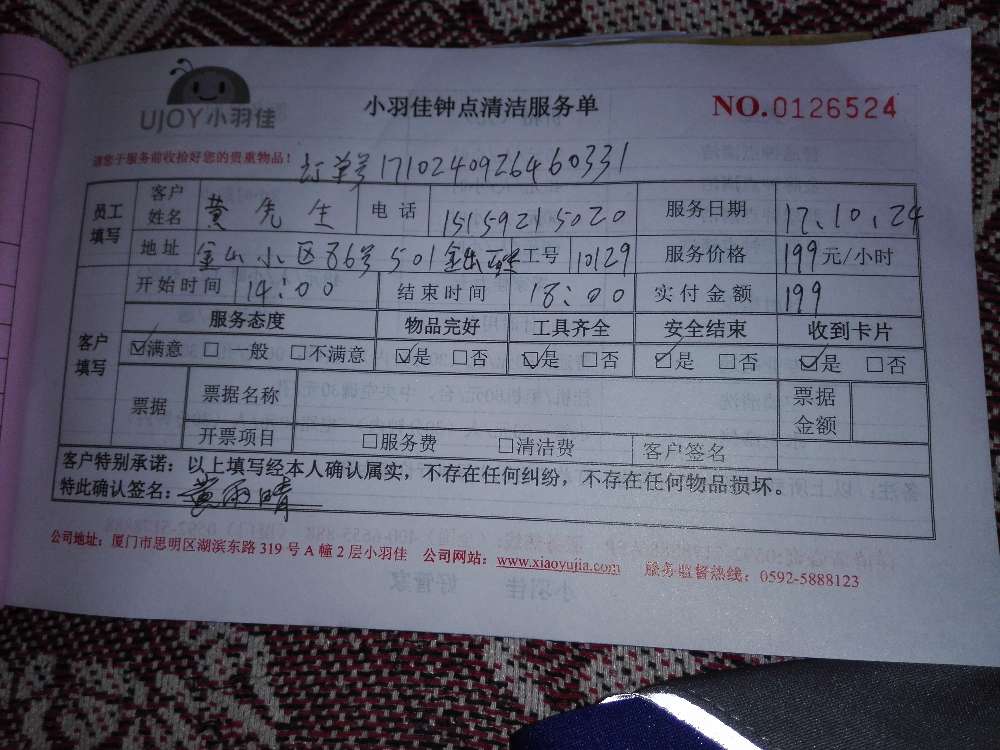 UJOY小羽佳
小羽佳钟点清洁服务单
NO.0126524
请您于服务前收拾好您的贵重物品！
订单号 171024092646033 1
员工填写 客户姓名 黄先生 电话 15159215020 服务日期 17.10.24
地址 金山小区86号501 工号 10129 服务价格 199元/小时
开始时间 14:00 结束时间 18:00 实付金额 199
客户填写 服务态度 物品完好 工具齐全 安全结束 收到卡片
☑满意 □一般 □不满意 ☑是 □否 ☑是 □否 ☑是 □否 ☑是 □否
票据 票据名称 票据金额
开票项目 □服务费 □清洁费 客户签名
客户特别承诺：以上填写经本人确认属实，不存在任何纠纷，不存在任何物品损坏。
特此确认签名：黄雨晴
公司地址：厦门市思明区湖滨东路319号A幢2层小羽佳 公司网站：www.xiaoyujia.com 服务监督热线：0592-5888123